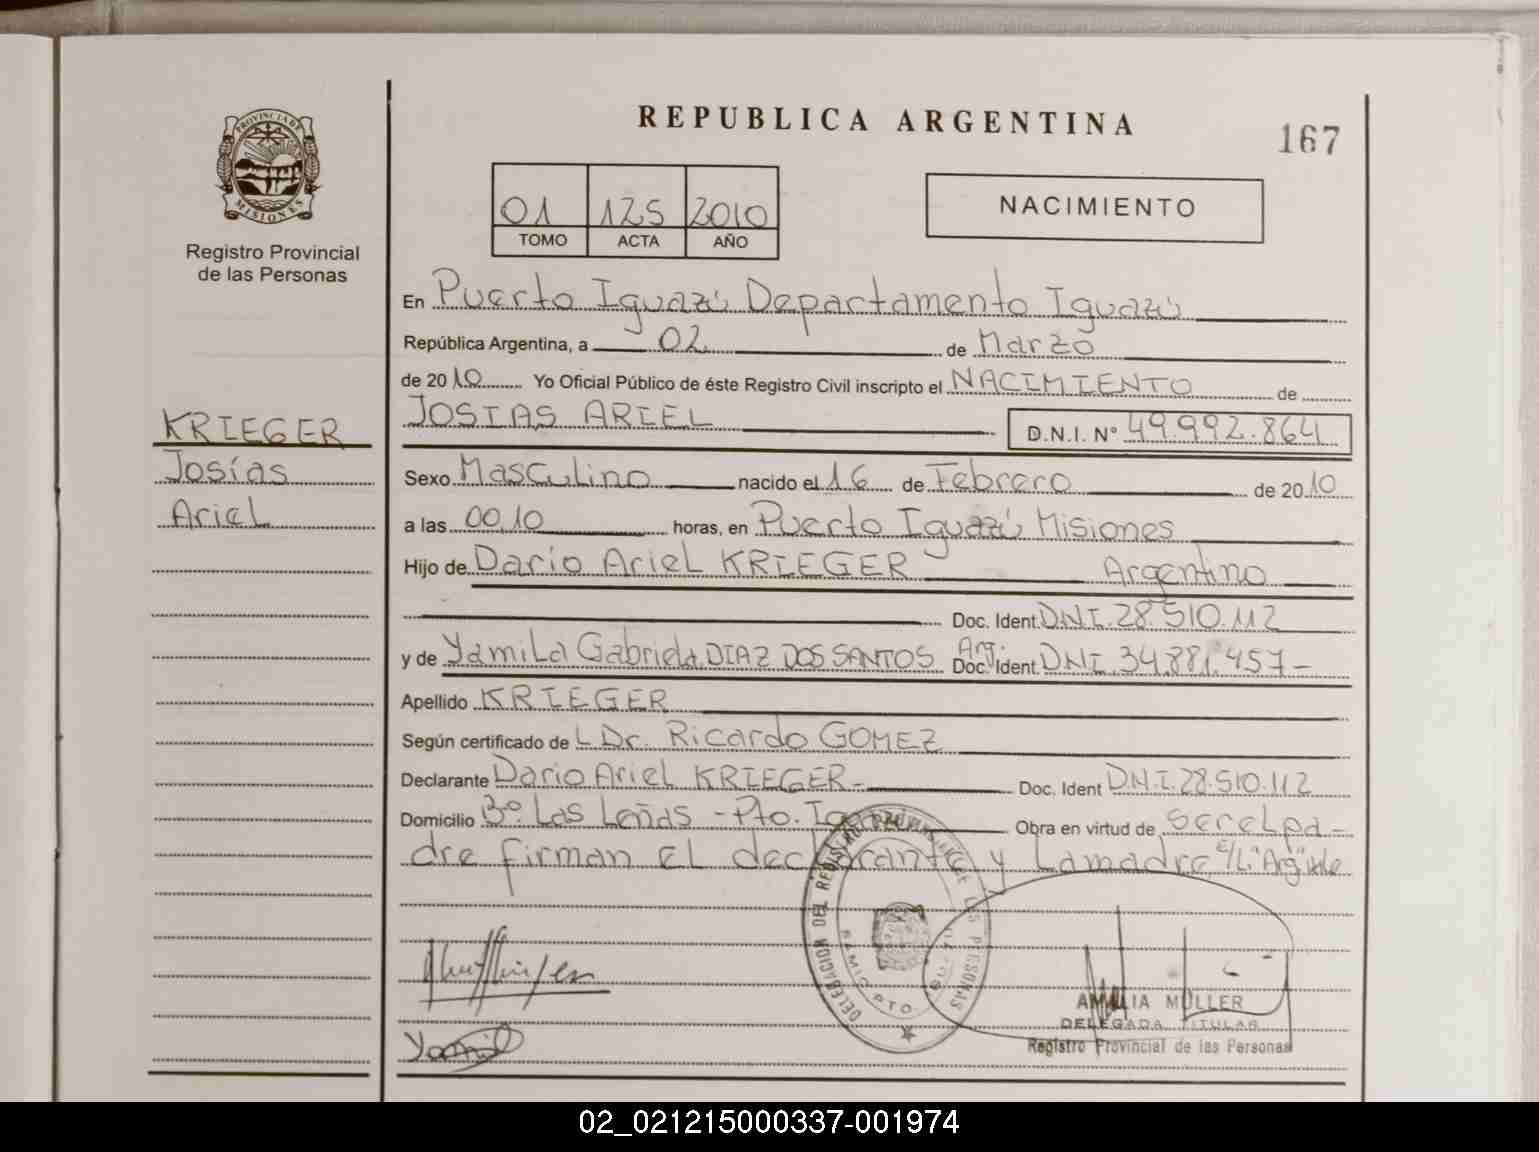 REPUBLICA ARGENTINA
167
PROVINCIA DE
MISIONES
Registro Provincial
de las Personas
01 125 2010
TOMO ACTA AÑO
NACIMIENTO
En Puerto Iguazú Departamento Iguazú
República Argentina, a 02 de Marzo
de 2010 Yo Oficial Público de éste Registro Civil inscripto el NACIMIENTO de
JOSIAS ARIEL D.N.I. N° 49.992.864
KRIEGER
Josías
Ariel
Sexo Masculino nacido el 16 de Febrero de 2010
a las 00,10 horas, en Puerto Iguazú Misiones
Hijo de Dario Ariel KRIEGER Argentino
Doc. Ident. DNI. 28.510.112
y de Yamila Gabriela DIAZ DOS SANTOS Arg. Doc. Ident. DNI. 34.881.457-
Apellido KRIEGER
Según certificado de L Dr. Ricardo GOMEZ
Declarante Dario Ariel KRIEGER- Doc. Ident D.N.I. 28.510.112
Domicilio B° Las Leñas - Pto. Iguazú Obra en virtud de ser el pa-
dre firman el declarante y la madre E/L "Arg" vale
DELEGACION DEL REGISTRO PROVINCIAL DE LAS PERSONAS
PTO.
AMALIA MÜLLER
DELEGADA TITULAR
Registro Provincial de las Personas
02_021215000337-001974